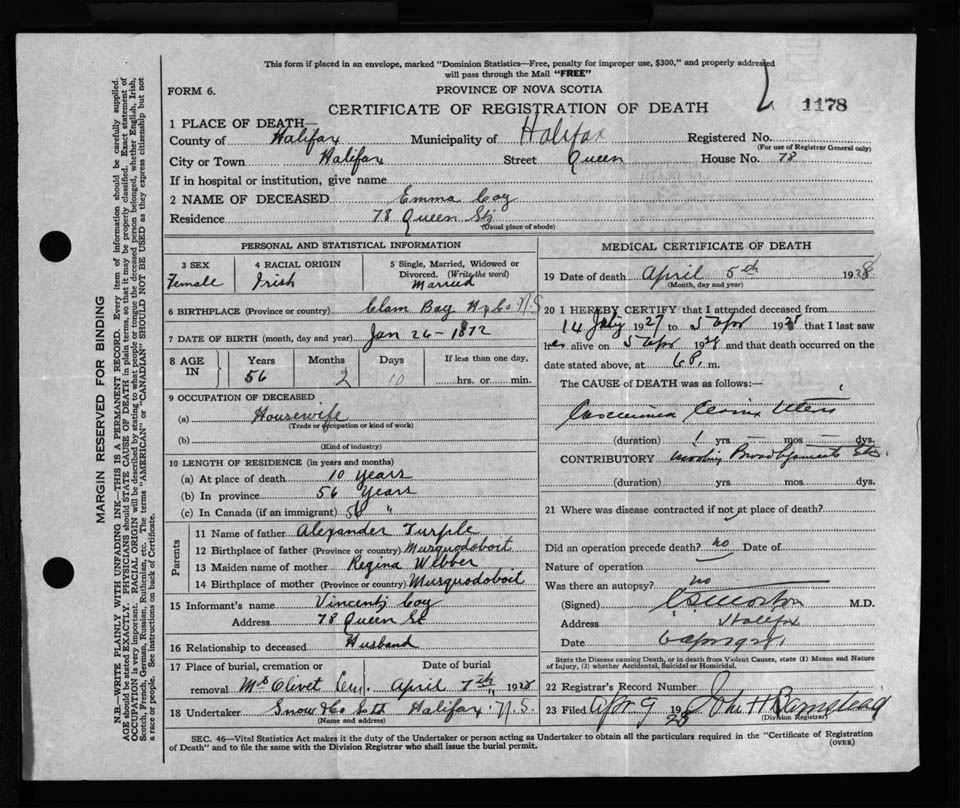 This form if placed in an envelope, marked "Dominion Statistics—Free, penalty for improper use, $300," and properly addressed
will pass through the Mail "FREE"
FORM 6.
PROVINCE OF NOVA SCOTIA
CERTIFICATE OF REGISTRATION OF DEATH
1178
1 PLACE OF DEATH—
County of Halifax Municipality of Halifax Registered No.
(For use of Registrar General only)
City or Town Halifax Street Queen House No. 78
If in hospital or institution, give name
2 NAME OF DECEASED Emma Coy
Residence 78 Queen St
(Usual place of abode)
PERSONAL AND STATISTICAL INFORMATION
3 SEX 4 RACIAL ORIGIN 5 Single, Married, Widowed or
Divorced. (Write the word)
Female Irish Married
6 BIRTHPLACE (Province or country) Clam Bay Hfx Co N.S
7 DATE OF BIRTH (month, day and year) Jan 26 - 1872
8 AGE IN Years Months Days If less than one day,
56 2 10 hrs. or min.
9 OCCUPATION OF DECEASED
(a) Housewife
(Trade or occupation or kind of work)
(b)
(Kind of industry)
10 LENGTH OF RESIDENCE (in years and months)
(a) At place of death 10 Years
(b) In province 56 Years
(c) In Canada (if an immigrant) 56 "
Parents
11 Name of father Alexander Turple
12 Birthplace of father (Province or country) Musquodoboit
13 Maiden name of mother Regina Webber
14 Birthplace of mother (Province or country) Musquodoboit
15 Informant's name Vincent Coy
Address 78 Queen St
16 Relationship to deceased Husband
17 Place of burial, cremation or Date of burial
removal Mt Olivet Cem. April 7th 1928
18 Undertaker Snow & Co Ltd Halifax N.S.
(Name and address)
MEDICAL CERTIFICATE OF DEATH
19 Date of death April 5th 1928
(Month, day and year)
20 I HEREBY CERTIFY that I attended deceased from
14 July 1927 to 5 Apr 1928 that I last saw
her alive on 5 Apr 1928 and that death occurred on the
date stated above, at 6 P. m.
The CAUSE of DEATH was as follows:—
Carcinoma Cervix Uteri
(duration) 1 yrs — mos — dys.
CONTRIBUTORY involving Broad ligaments Etc.
(duration) yrs. mos. dys.
21 Where was disease contracted if not at place of death?
Did an operation precede death? no Date of
Nature of operation
Was there an autopsy? no
(Signed) M.D.
Address Halifax
Date
State the Disease causing Death, or in death from Violent Causes, state (1) Means and Nature
of Injury, (2) whether Accidental, Suicidal or Homicidal.
22 Registrar's Record Number
23 Filed Apr 9 1928 John H Barnstead
(Division Registrar)
SEC. 46—Vital Statistics Act makes it the duty of the Undertaker or person acting as Undertaker to obtain all the particulars required in the "Certificate of Registration
of Death" and to file the same with the Division Registrar who shall issue the burial permit. (OVER)
MARGIN RESERVED FOR BINDING
N.B.—WRITE PLAINLY WITH UNFADING INK—THIS IS A PERMANENT RECORD. Every item of information should be carefully supplied.
AGE should be stated EXACTLY. PHYSICIANS should STATE CAUSE OF DEATH in plain terms, so that it may be properly classified. Exact statement of
OCCUPATION is very important. RACIAL ORIGIN will be described by stating to what people or tongue the deceased person belonged, whether English, Irish,
Scotch, French, German, Russian, Ruthenian, etc. The terms "AMERICAN" or "CANADIAN" SHOULD NOT BE USED as they express citizenship but not
a race or people. See instructions on back of Certificate.